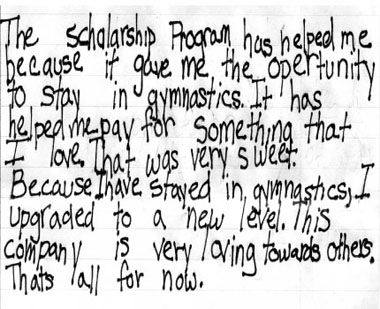 The scholarship Program has helped me
because it gave me the opertunity
to stay in gymnastics. It has
helped me pay for something that
I love. That was very sweet.
Because I have stayed in gymnastics, I
upgraded to a new level. This
company is very loving towards others.
Thats all for now.